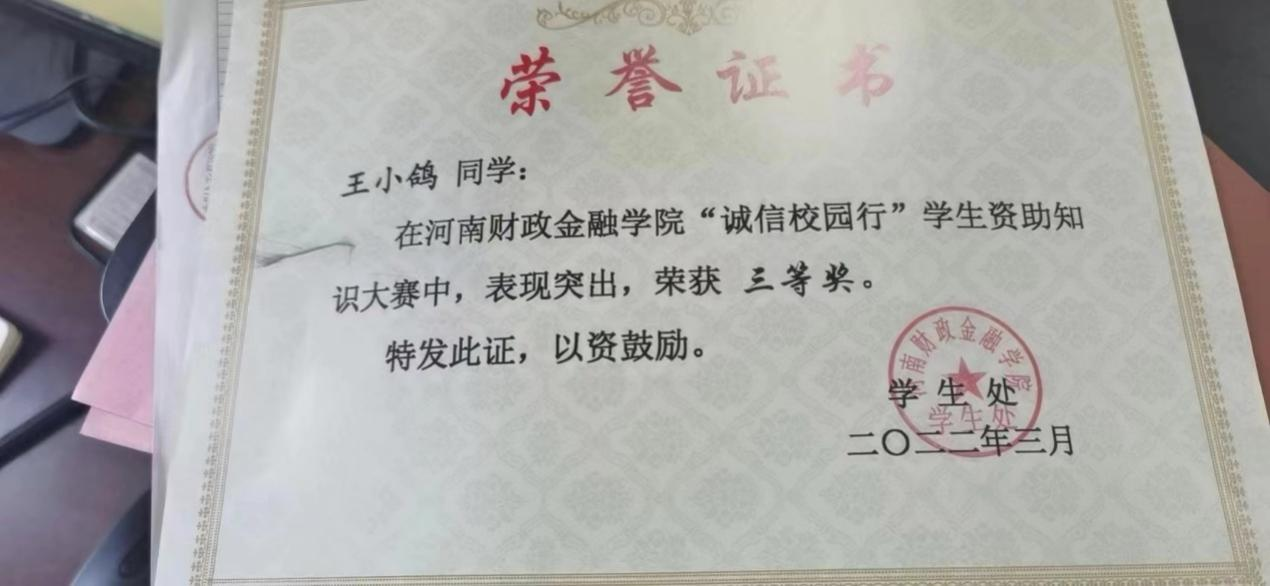 荣誉证书
王小鸽 同学：
在河南财政金融学院“诚信校园行”学生资助知
识大赛中，表现突出，荣获 三等奖。
特发此证，以资鼓励。
河南财政金融学院
学生处
学生处
二〇二二年三月